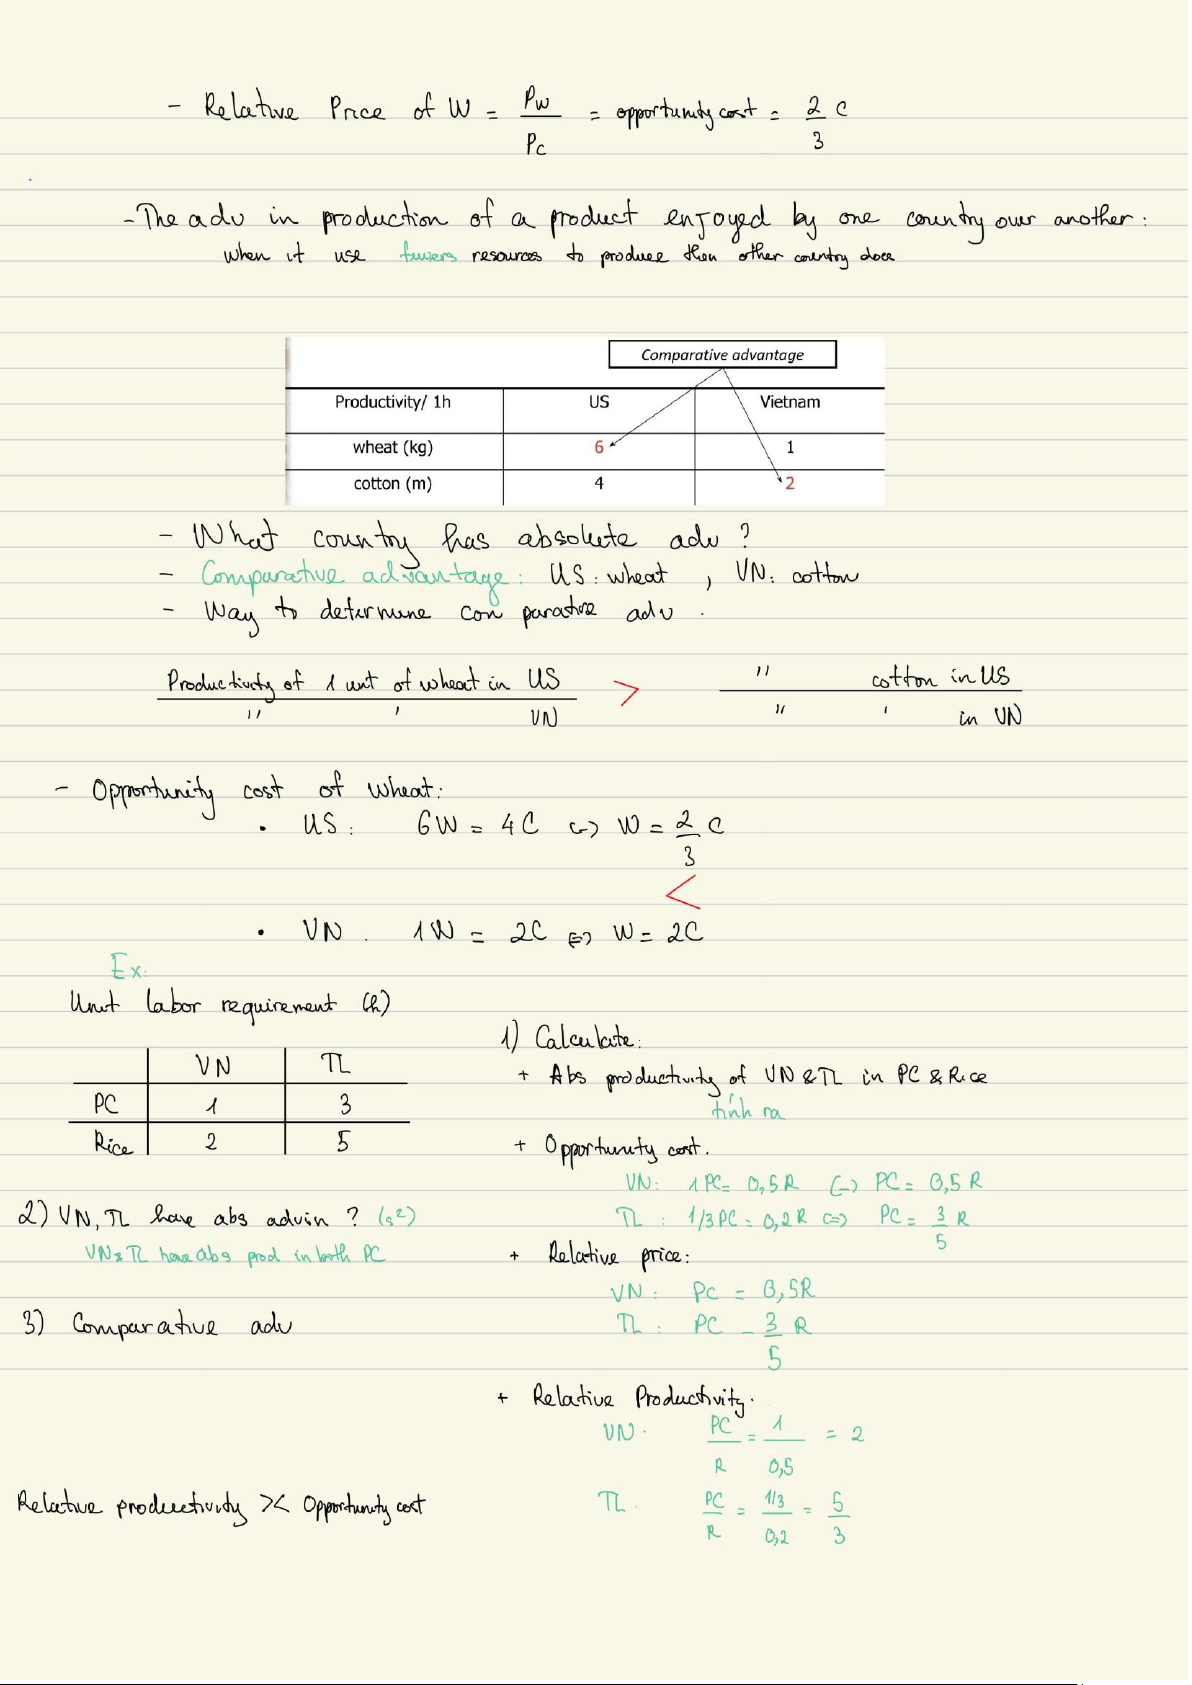 - Relative Price of W = Pw / Pc = opportunity cost = 2/3 C
- The adv in production of a product enjoyed by one country over another:
when it use fewers resources to produce then other country does
Comparative advantage
Productivity/ 1h US Vietnam
wheat (kg) 6 1
cotton (m) 4 2
- What country has absolute adv ?
- Comparative advantage: US: wheat , VN: cotton
- Way to determine con parative adv .
Productivity of 1 unit of wheat in US > " cotton in US
" ' VN " ' in VN
- Opportunity cost of wheat:
• US: 6W = 4C <-> W = 2/3 C
<
• VN . 1W = 2C <=> W = 2C
Ex:
Unit labor requirement (h)
VN TL
PC 1 3
Rice 2 5
1) Calculate:
+ Abs productivity of VN & TL in PC & Rice
tính ra
+ Opportunity cost.
VN: 1PC = 0,5R <-> PC = 0,5 R
TL : 1/3PC = 0,2R <=> PC = 3/5 R
+ Relative price:
VN: PC = 0,5R
TL : PC = 3/5 R
+ Relative Productivity.
VN. PC/R = 1/0,5 = 2
TL. PC/R = 1/3 / 0,2 = 5/3
2) VN, TL have abs adv in ? (s2)
VN & TL have abs prod in both PC
3) Comparative adv
Relative productivity >< Opportunity cost